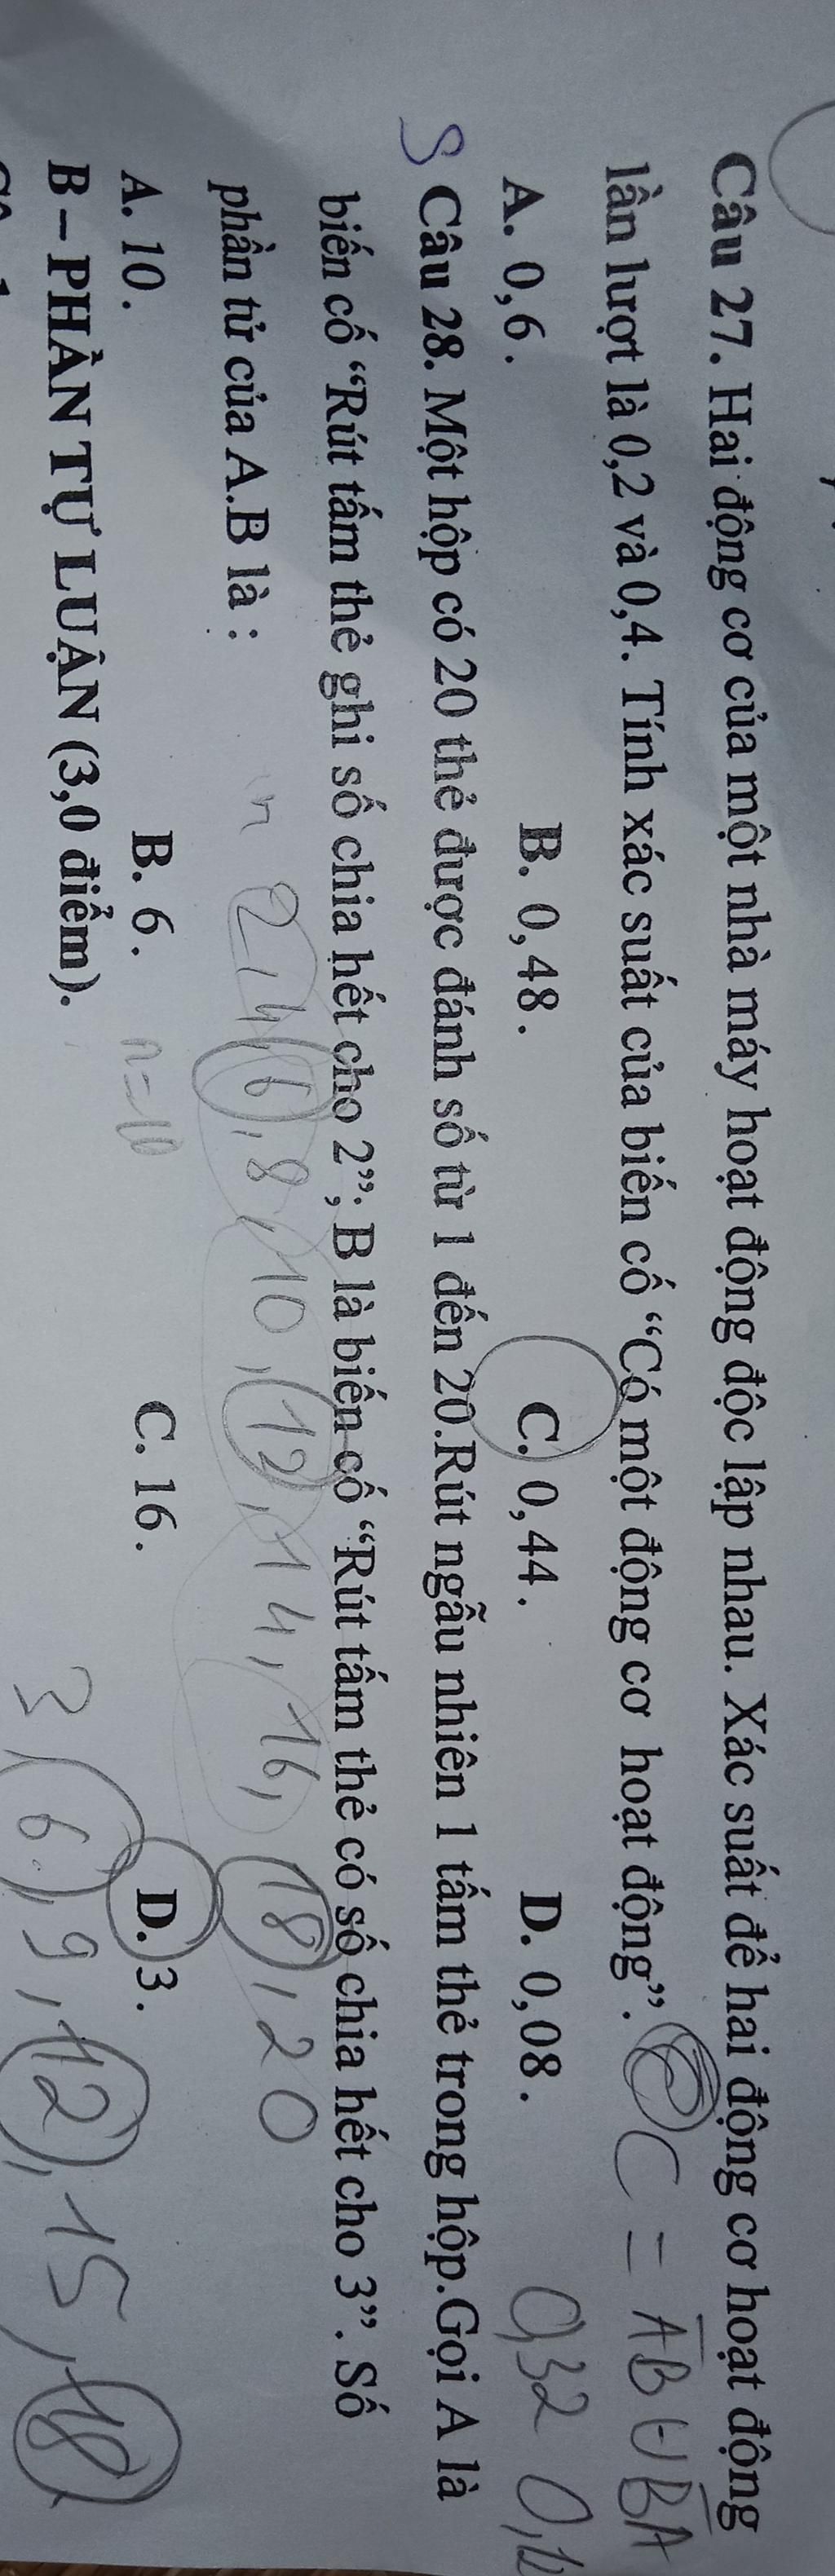 Câu 27. Hai động cơ của một nhà máy hoạt động độc lập nhau. Xác suất để hai động cơ hoạt động
lần lượt là 0,2 và 0,4. Tính xác suất của biến cố “Có một động cơ hoạt động”. C = A̅B ∪ B̅A
A. 0,6. B. 0,48. C. 0,44. D. 0,08. 0,32 0,12
S Câu 28. Một hộp có 20 thẻ được đánh số từ 1 đến 20.Rút ngẫu nhiên 1 tấm thẻ trong hộp.Gọi A là
biến cố “Rút tấm thẻ ghi số chia hết cho 2”; B là biến cố “Rút tấm thẻ có số chia hết cho 3”. Số
phần tử của A.B là :
2, 4, 6, 8, 10, 12, 14, 16, 18, 20
A. 10. B. 6. C. 16. D. 3.
n=10
B – PHẦN TỰ LUẬN (3,0 điểm).
3, 6, 9, 12, 15, 18